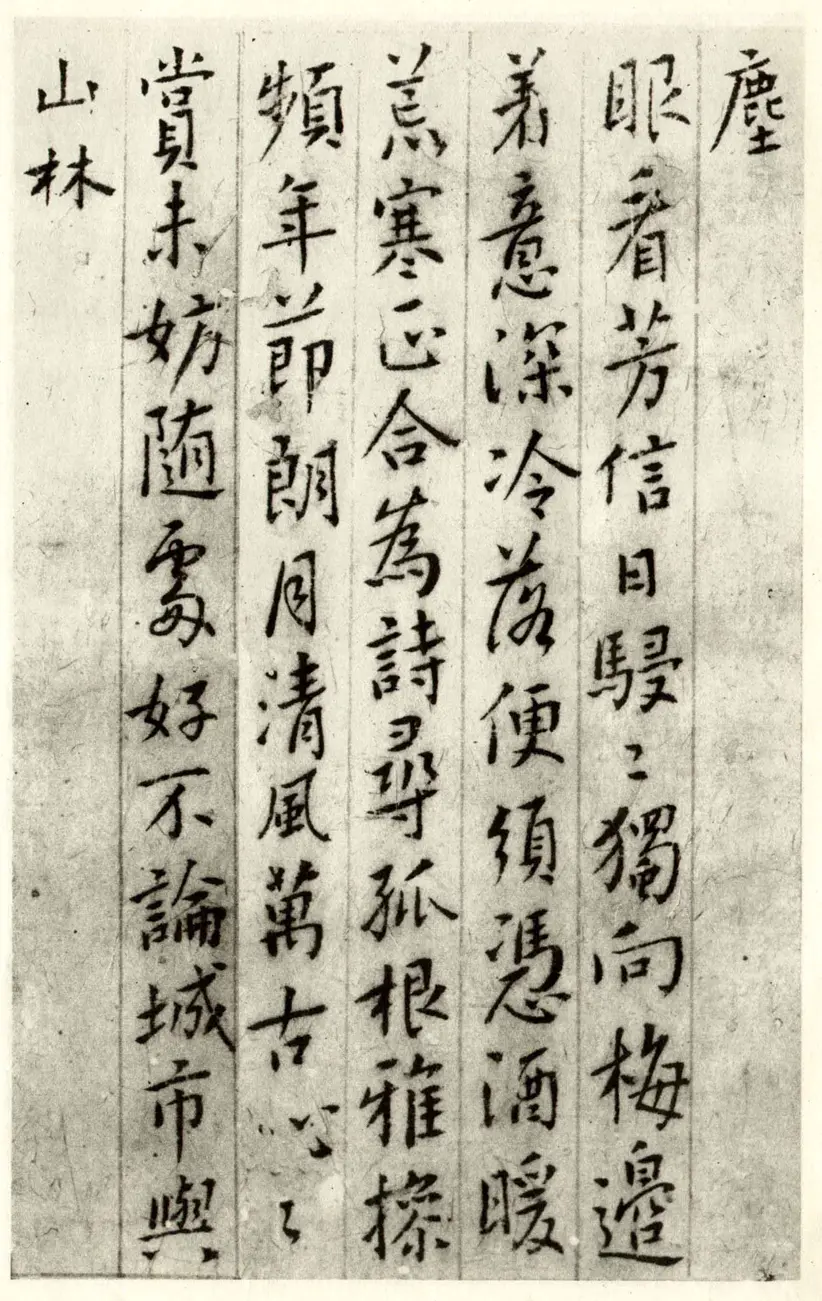 塵
眼看芳信日駸〻獨向梅邊
着意深冷落便須憑酒暖
荒寒正合為詩尋孤根雅操
頻年節朗月清風萬古心〻
賞未妨随處好不論城市與
山林